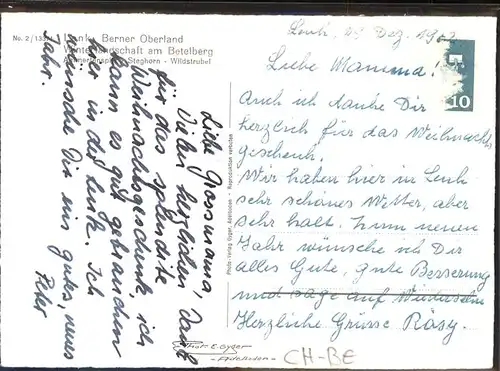 No. 2/133
Lenk, Berner Oberland
Winterlandschaft am Betelberg
Steghorn - Wildstrubel
Photo-Verlag Gyger, Adelboden - Reproduktion verboten
Liebe Grossmama,
Vielen herzlichen Dank
für das splendide
Weihnachtsgeschenk, ich
kann es gut gebrauchen
hier in der Lenk. Ich
wünsche Dir ein gutes, neues
Jahr.
Peter
Lenk, Dez.
Liebe Mamma!
Auch ich danke Dir
herzlich für das Weihnachts
geschenk.
Wir haben hier in Lenk
sehr schönes Wetter, aber
sehr kalt. Zum neuen
Jahr wünsche ich Dir
alles Gute, gute Besserung
und sage auf Wiedersehn
Herzliche Grüsse Rösy.
10
Phot. E. Gyger
- Adelboden -
CH-BE